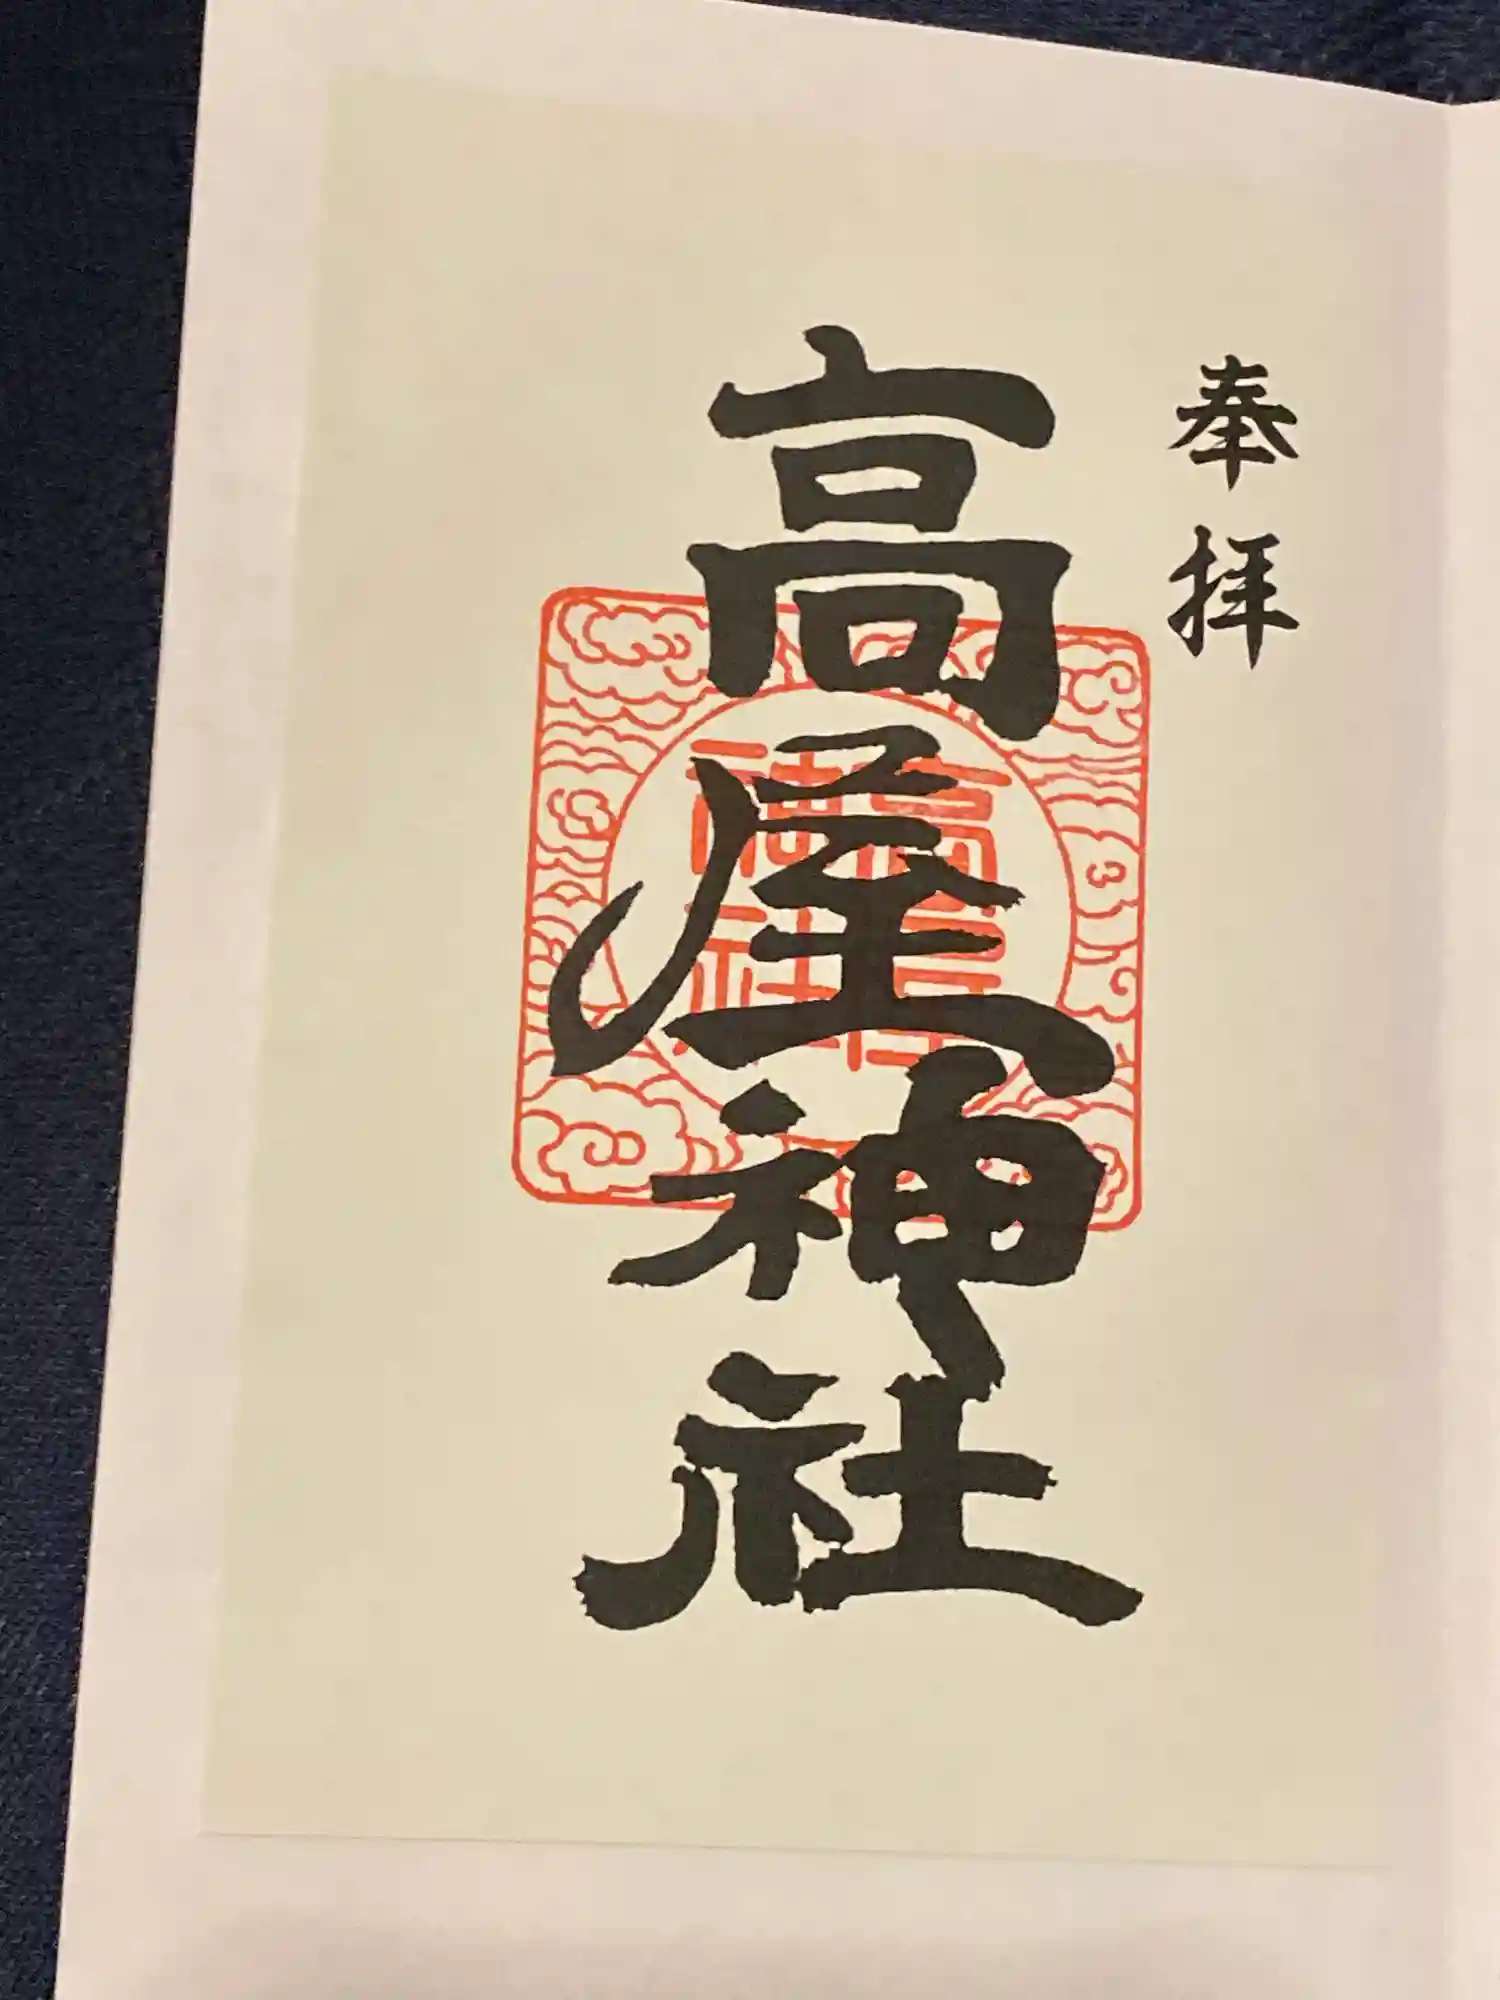 奉拝
高屋神社
高屋神社